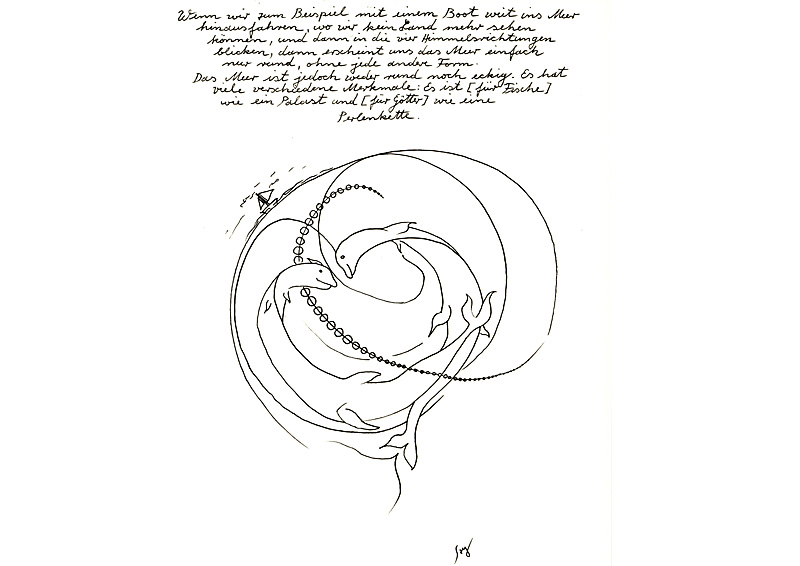 Wenn wir zum Beispiel mit einem Boot weit ins Meer
hinausfahren, wo wir kein Land mehr sehen
können, und dann in die vier Himmelsrichtungen
blicken, dann erscheint uns das Meer einfach
nur rund, ohne jede andere Form.
Das Meer ist jedoch weder rund noch eckig. Es hat
viele verschiedene Merkmale: Es ist [für Fische]
wie ein Palast und [für Götter] wie eine
Perlenkette.